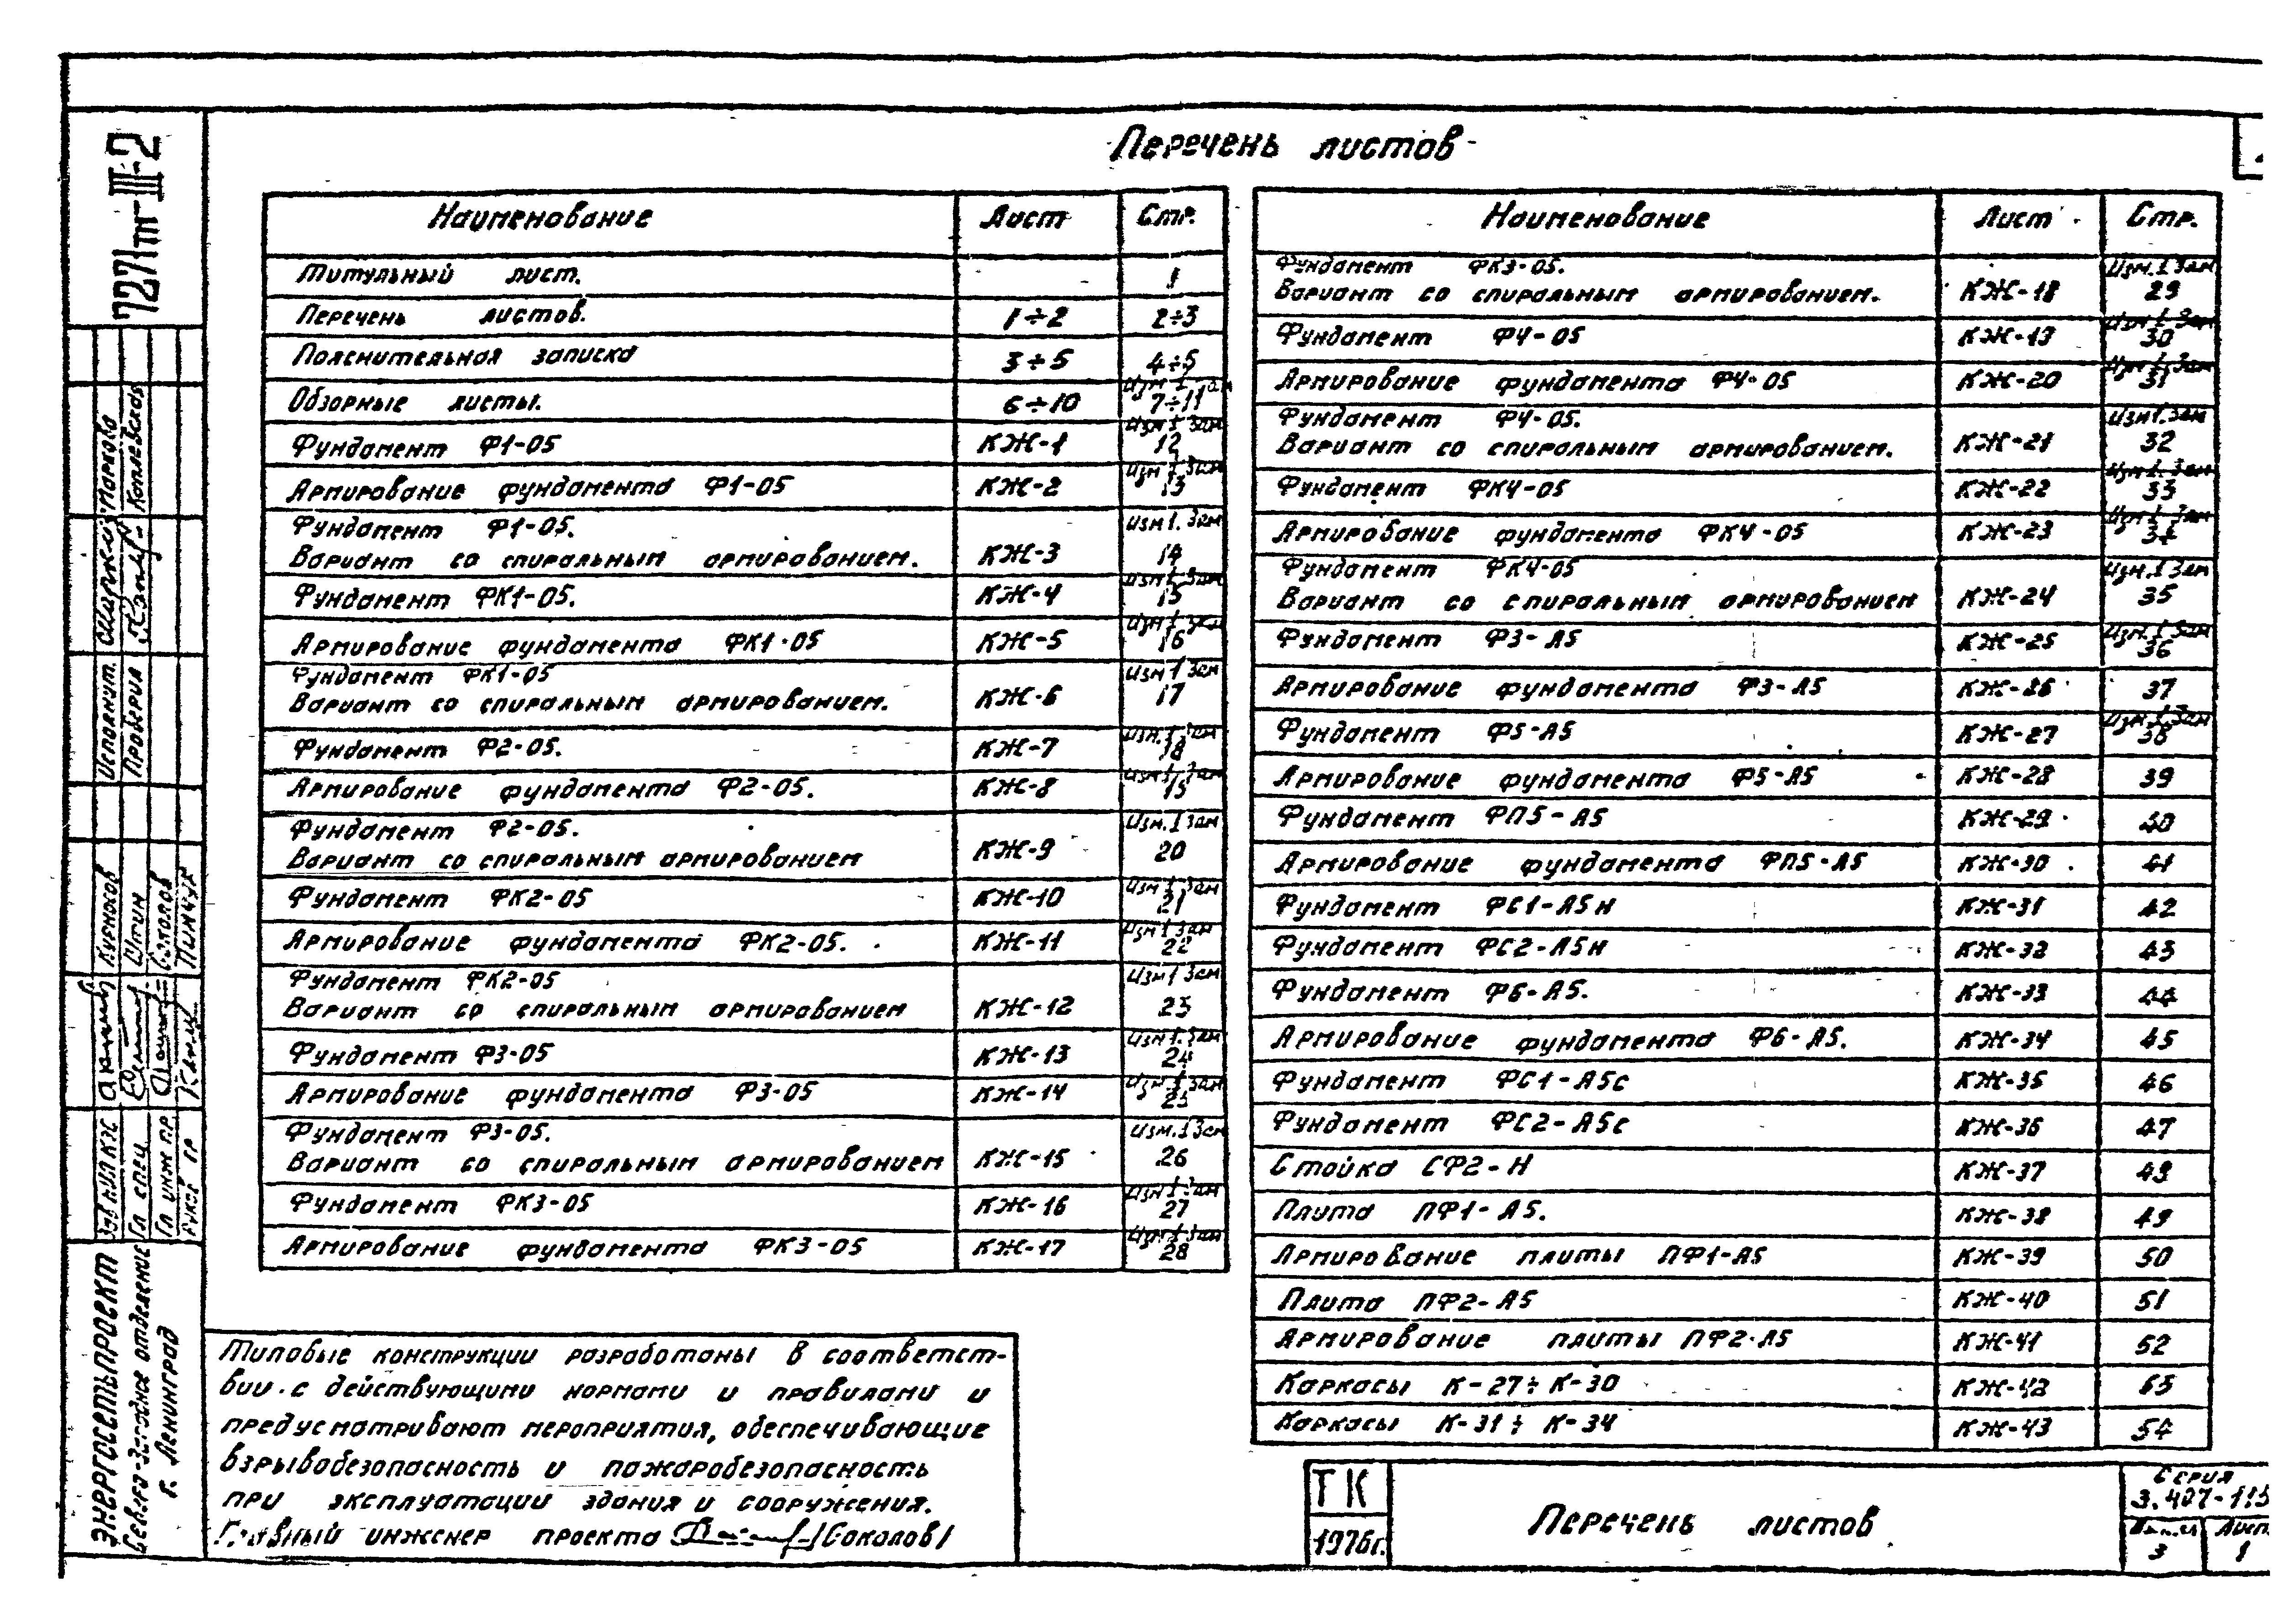 Перечень листов
Наименование Лист Стр.
Титульный лист. 1
Перечень листов. 1÷2 2÷3
Пояснительная записка 3÷5 4÷5
Обзорные листы. 6÷10 Изм 1 зам 7÷11
Фундамент Ф1-05 КЖ-1 Изм 1 Зам 12
Армирование фундамента Ф1-05 КЖ-2 Изм 1 Зам 13
Фундамент Ф1-05. Изм 1. Зам
Вариант со спиральным армированием. КЖ-3 14
Фундамент ФК1-05. КЖ-4 Изм 1 Зам 15
Армирование фундамента ФК1-05 КЖ-5 Изм 1 Зам 16
Фундамент ФК1-05 Изм 1 Зам
Вариант со спиральным армированием. КЖ-6 17
Фундамент Ф2-05. КЖ-7 Изм. 1 Зам 18
Армирование фундамента Ф2-05. КЖ-8 Изм 1, Зам 19
Фундамент Ф2-05. Изм. 1 Зам
Вариант со спиральным армированием КЖ-9 20
Фундамент ФК2-05 КЖ-10 Изм 1 Зам 21
Армирование фундамента ФК2-05. КЖ-11 Изм 1 Зам 22
Фундамент ФК2-05 Изм 1 Зам
Вариант со спиральным армированием КЖ-12 23
Фундамент Ф3-05 КЖ-13 Изм 1. Зам 24
Армирование фундамента Ф3-05 КЖ-14 Изм. 1 Зам 25
Фундамент Ф3-05. Изм. 1 Зам
Вариант со спиральным армированием КЖ-15 26
Фундамент ФК3-05 КЖ-16 Изм 1 Зам 27
Армирование фундамента ФК3-05 КЖ-17 Изм 1 Зам 28
Наименование Лист Стр.
Фундамент ФК3-05. Изм. 1 Зам
Вариант со спиральным армированием. КЖ-18 29
Фундамент Ф4-05 КЖ-19 Изм 1 Зам 30
Армирование фундамента Ф4-05 КЖ-20 Изм 1. Зам 31
Фундамент Ф4-05. Изм 1. Зам
Вариант со спиральным армированием. КЖ-21 32
Фундамент ФК4-05 КЖ-22 Изм 1. Зам 33
Армирование фундамента ФК4-05 КЖ-23 Изм 1 Зам 34
Фундамент ФК4-05 Изм. 1 Зам
Вариант со спиральным армированием КЖ-24 35
Фундамент Ф3-А5 КЖ-25 Изм. 1 Зам 36
Армирование фундамента Ф3-А5 КЖ-26 37
Фундамент Ф5-А5 КЖ-27 Изм. 1. Зам 38
Армирование фундамента Ф5-А5 КЖ-28 39
Фундамент ФП5-А5 КЖ-29 40
Армирование фундамента ФП5-А5 КЖ-30 41
Фундамент ФС1-А5н КЖ-31 42
Фундамент ФС2-А5н КЖ-32 43
Фундамент Ф6-А5. КЖ-33 44
Армирование фундамента Ф6-А5. КЖ-34 45
Фундамент ФС1-А5с КЖ-35 46
Фундамент ФС2-А5с КЖ-36 47
Стойка СФ2-Н КЖ-37 48
Плита ПФ1-А5. КЖ-38 49
Армирование плиты ПФ1-А5 КЖ-39 50
Плита ПФ2-А5 КЖ-40 51
Армирование плиты ПФ2-А5 КЖ-41 52
Каркасы К-27÷К-30 КЖ-42 53
Каркасы К-31÷К-34 КЖ-43 54
Типовые конструкции разработаны в соответст-
вии с действующими нормами и правилами и
предусматривают мероприятия, обеспечивающие
взрывобезопасность и пожаробезопасность
при эксплуатации здания и сооружения.
Главный инженер проекта /Соколов/
ТК
1976г.
Перечень листов
Серия
3.407-115
Выпуск Лист
3 1
7271тм-III-2
Исполнит. Маркова
Проверил Котлевская
Зав НИЛКЭС Курносов
Гл спец Штин
Гл инж пр Соколов
Руков гр Пинчук
ЭНЕРГОСЕТЬПРОЕКТ
Северо-Западное отделение
г. Ленинград